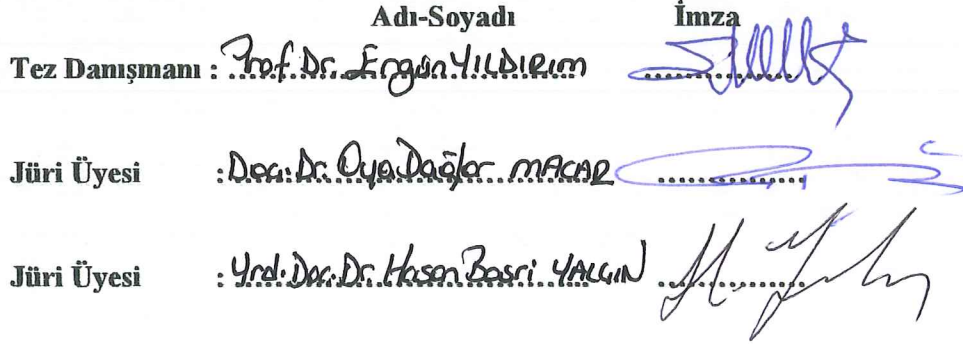 Adı-Soyadı İmza
Tez Danışmanı : Prof. Dr. Ergün YILDIRIm
Jüri Üyesi : Doç. Dr. Oya Dağlar mACAR
Jüri Üyesi : Yrd. Doç. Dr. Hasan Basri YALÇIN